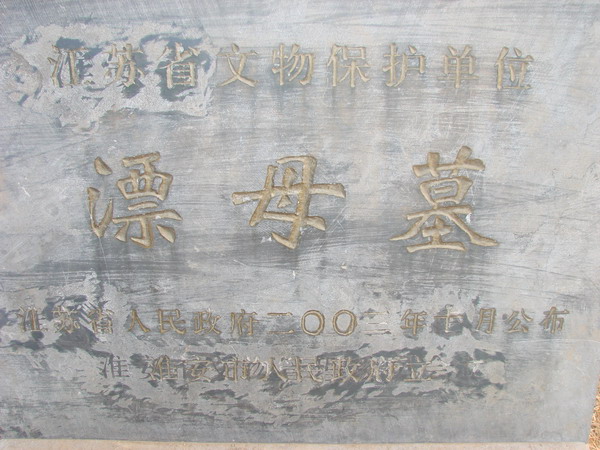 江苏省文物保护单位
漂母墓
江苏省人民政府二〇〇二年十月公布
淮安市人民政府立